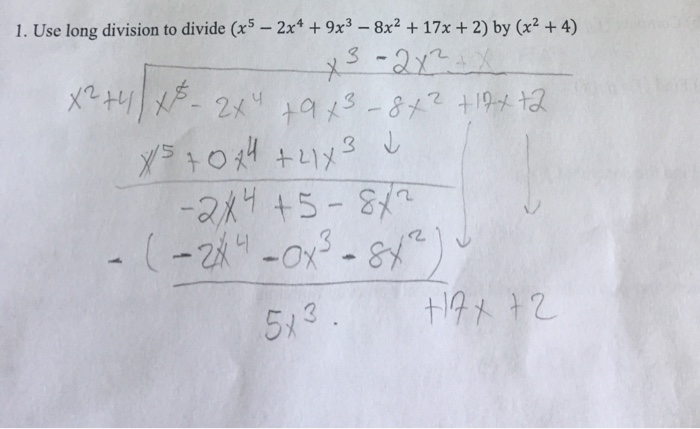 1. Use long division to divide (x⁵ – 2x⁴ + 9x³ – 8x² + 17x + 2) by (x² + 4)
x³ -2x² +x
x²+4 x⁵- 2x⁴ +9x³ -8x² +17x+2
x⁵ +0x⁴ +4x³
-2x⁴ +5 - 8x²
- (-2x⁴ -0x³ -8x²)
5x³. +17x +2